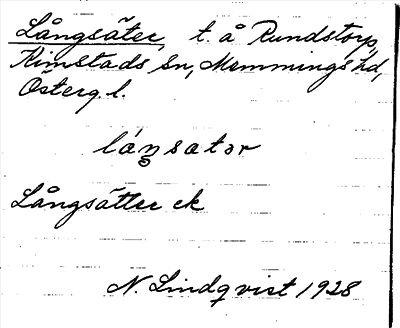 Långsäter, t. å Rundstorp,
Kimstads Sn, Memmings hd,
Östergl.
låŋsatər
Långsätter ek
N. Lindqvist 1928